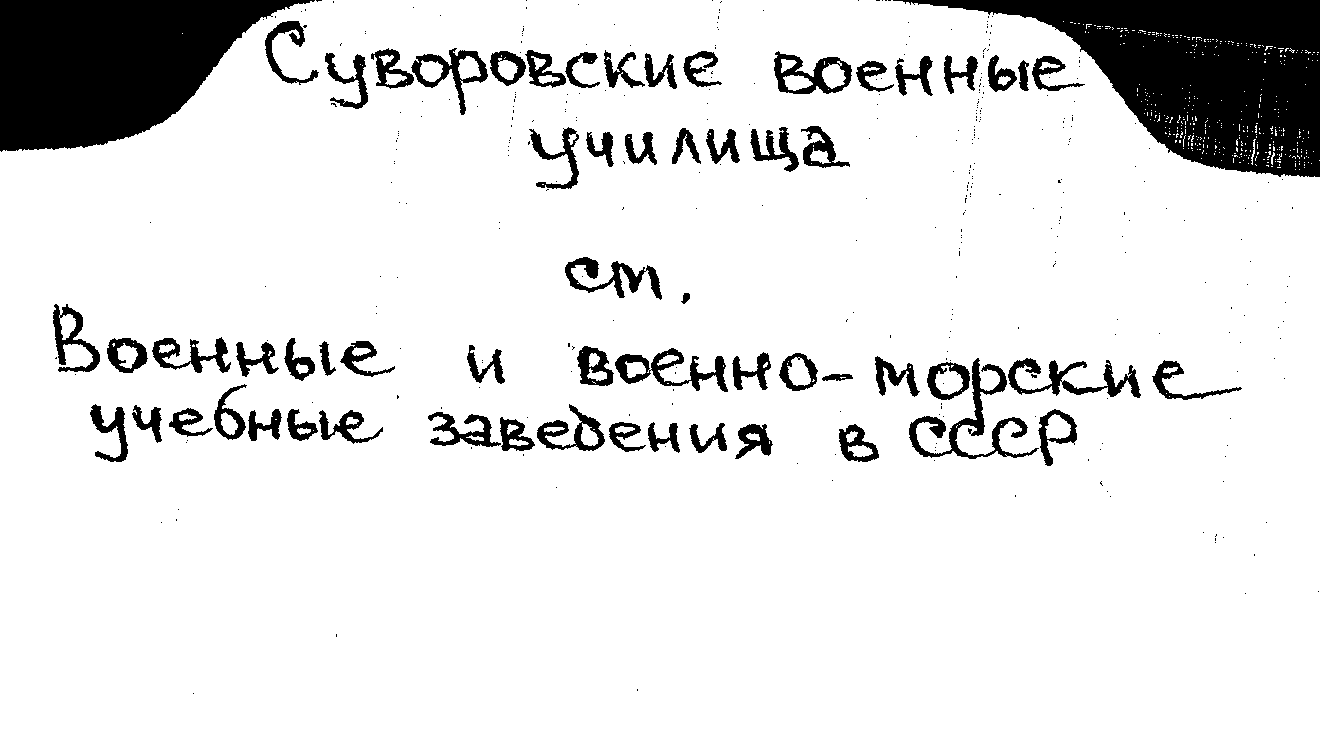 Суворовские военные
училища
см.
Военные и военно-морские
учебные заведения в СССР